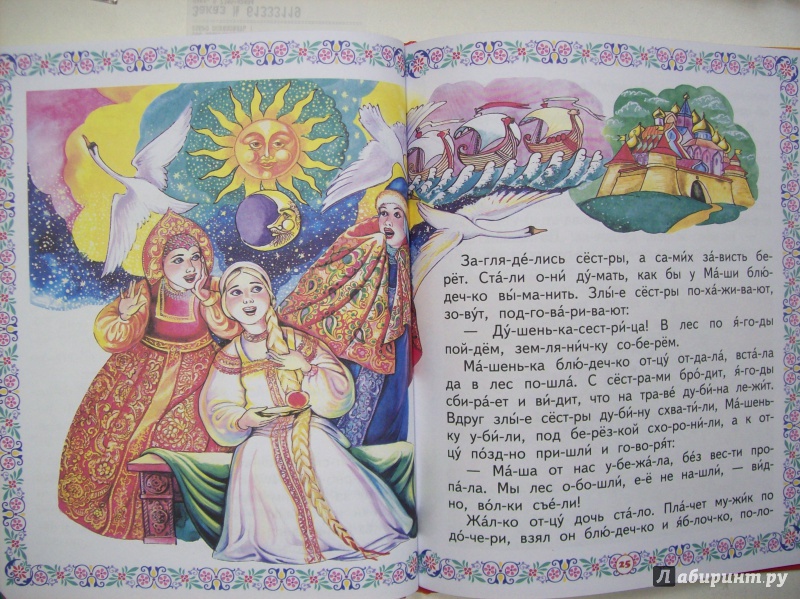 Заказ № 61333119
За-гля-де́-лись сёст-ры, а са-ми́х за́-висть бе-
рёт. Ста́-ли о-ни́ ду́-мать, как бы у Ма́-ши блю́-
деч-ко вы́-ма-нить. Злы́-е сёст-ры по-ха́-жи-ва-ют,
зо-ву́т, под-го-ва́-ри-ва-ют:
— Ду́-шень-ка-сест-ри́-ца! В лес по я́-го-ды
пой-дём, зем-ля-ни́ч-ку со-бе-рём.
Ма́-шень-ка блю́-деч-ко от-цу́ от-да-ла́, вста́-ла
да в лес по-шла́. С сёст-ра-ми бро́-дит, я́-го-ды
сби-ра́-ет и ви́-дит, что на тра-ве́ ду-би́-на ле-жи́т.
Вдруг злы́-е сёст-ры ду-би́-ну схва-ти́-ли, Ма́-шень-
ку у-би́-ли, под бе-рёз-кой схо-ро-ни́-ли, а к от-
цу́ по́зд-но при-шли́ и го-во-ря́т:
— Ма́-ша от нас у-бе-жа́-ла, бе́з вес-ти про-
па́-ла. Мы лес о-бо-шли́, е-ё не на-шли́, — ви́д-
но, во́л-ки съе́-ли!
Жа́л-ко от-цу́ дочь ста́-ло. Пла́-чет му-жи́к по
до́-че-ри, взял он блю́-деч-ко и я́б-лоч-ко, по-ло-
25
Лабиринт.ру